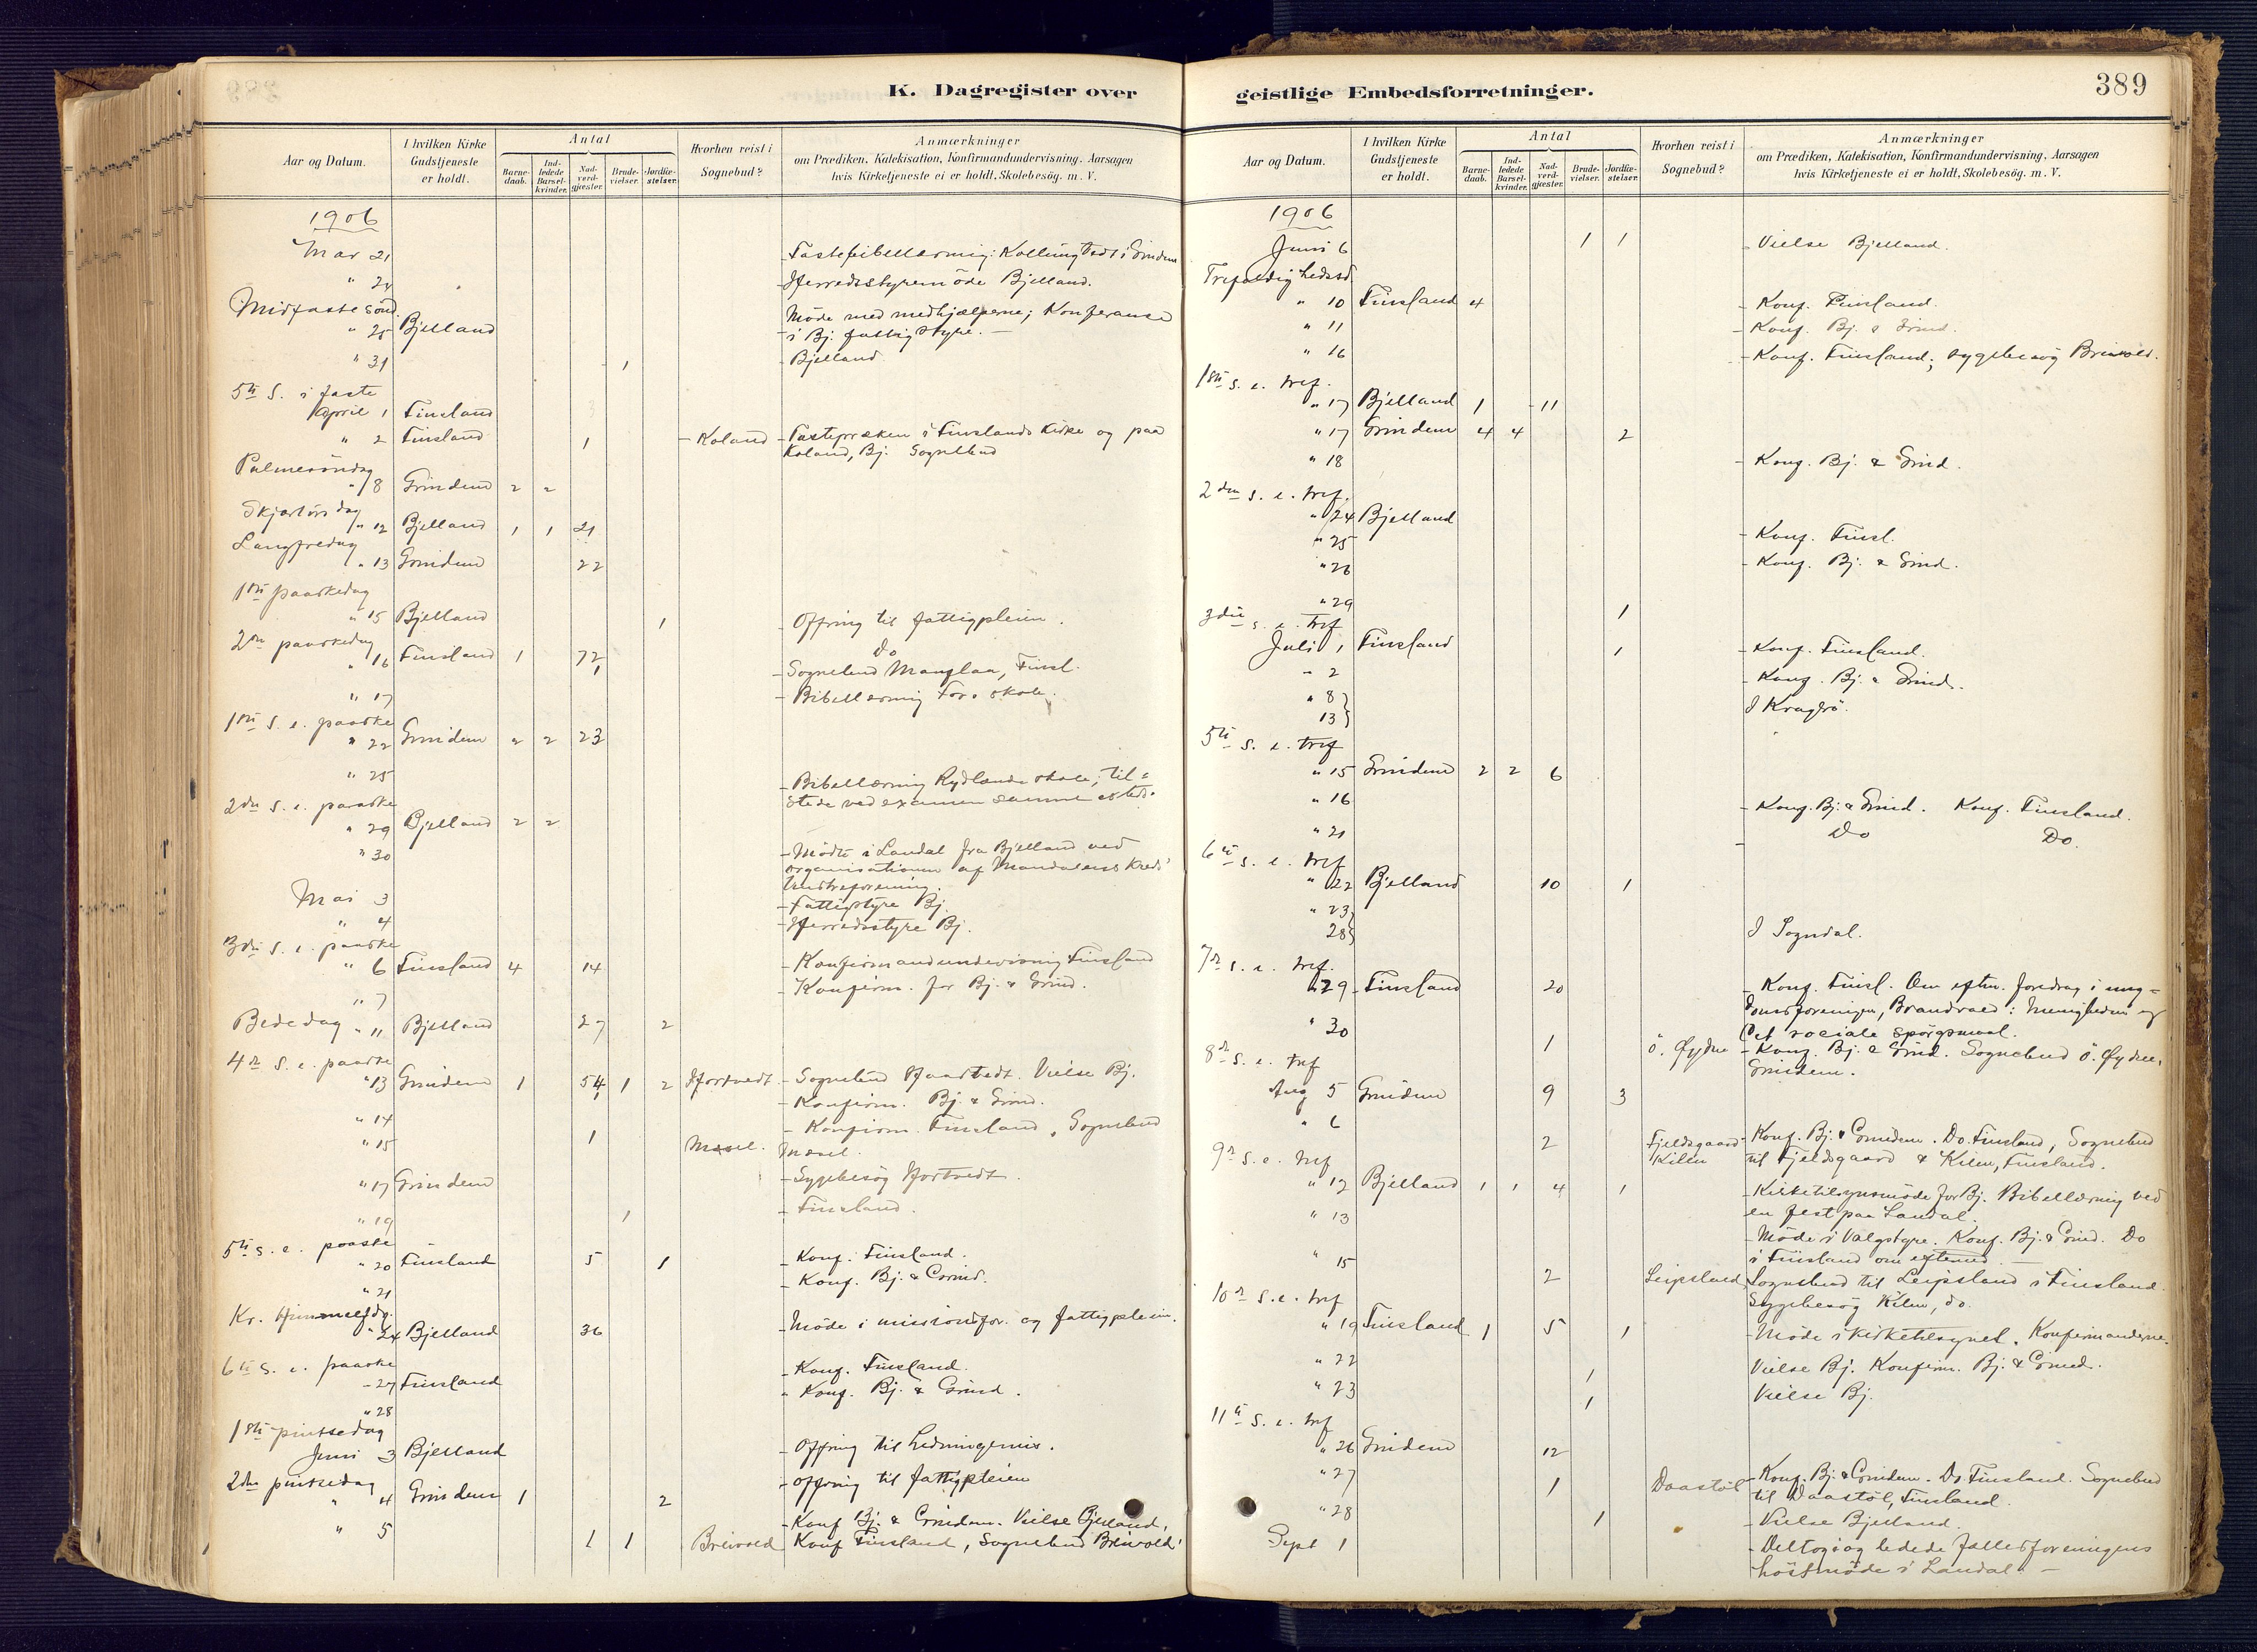 K. Dagregister over
Aar og Datum.
I hvilken Kirke Gudstjeneste er holdt.
Antal
Barnedaab.
Indledede Barselkvinder.
Nadverdgjæster.
Brudevielser.
Jordfæstelser.
Hvorhen reist i Sognebud?
Anmærkninger
om Prædiken, Katekisation, Konfirmandundervisning, Aarsagen
hvis Kirketjeneste ei er holdt, Skolebesög. m. V.
1906
Mar 21 - Fastebibellæsning: i Grindem
" 24 - Herredsstyremöde Bjelland.
Midfastesönd.
" 25 Bjelland Möde med medhjælperne; Konferanse
- i Bj. fattigstyre. -
" 31 1 - Bjelland
5te S. i faste
April 1 Finsland
" 2 Finsland 1 - Koland - Fastepræken i Finslands Kirke og paa
Koland, Bj. Sognebud
Palmesöndag
" 8 Grindem 2 2
Skjærtorsdag
" 12 Bjelland 1 1 21
Langfredag
" 13 Grindem 22
1ste paaskedag
" 15 Bjelland 1 - Offring til fattigpleien.
2den paaskedag Do
" 16 Finsland 1 72
1 - Sognebud Manflaa, Finsl.
" 17 - Bibellæsning skole.
1ste S. e. paaske
" 22 Grindem 2 2 23
" 25 - Bibellæsning Rydlands skole; til=
stede ved examen samme steds.
2den S. e. paaske
" 29 Bjelland 2 2
" 30 - Mödte i Laudal fra Bjelland ved
organisationen af Mandalens Kreds'
Venstreforening.
Mai 3 - Fattigstyre Bj.
" 4 - Herredsstyre Bj.
3die S. e. paaske
" 6 Finsland 4 14 - Konfirmandundervisning Finsland
" 7 - Konfirm. for Bj. & Grind.
Bededag " 11 Bjelland 27 2
4de S. e. paaske
" 13 Grindem 1 54 1 2 Hortvedt - Sognebud Hortvedt. Vielse Bj.
1
" 14 - Konfirm. Bj. & Grind.
" 15 1 Mæsel. - Konfirm. Finsland, Sognebud
Mæsel.
" 17 Grindem - Sygebesög Hortvedt.
" 19 1 - Finsland.
5te S. e. paaske
" 20 Finsland 5 1 - Konf. Finsland.
" 21 - Konf. Bj. & Grind.
Kr. Himmelfdg.
" 24 Bjelland 36 - Möde i missionsfor. og fattigpleien.
6te S. e. paaske
- 27 Finsland - Konf. Finsland.
" 28 - Konf. Bj. & Grind.
1ste pintsedag
Juni 3 Bjelland - Offring til hedningemis.
2den pintsedag
" 4 Grindem 1 2 - Offring til fattigpleien
" 5 1 1 Breivold - Konf Bj. & Grindem. Vielse Bjelland.
Konf Finsland, Sognebud Breivold
geistlige Embedsforretninger.
389
Aar og Datum.
I hvilken Kirke Gudstjeneste er holdt.
Antal
Barnedaab.
Indledede Barselkvinder.
Nadverdgjæster.
Brudevielser.
Jordfæstelser.
Hvorhen reist i Sognebud?
Anmærkninger
om Prædiken, Katekisation, Konfirmandundervisning, Aarsagen
hvis Kirketjeneste ei er holdt, Skolebesög. m. V.
1906
Juni 6 1 1 - Vielse Bjelland.
Trefoldighedssd.
" 10 Finsland 4 - Konf. Finsland.
" 11 - Konf. Bj. & Grind.
" 16 - Konf. Finsland; sygebesög Breivold.
1ste S. e. tref.
" 17 Bjelland 1 11
" 17 Grindem 4 4 2
" 18 - Konf. Bj. & Grind.
2den S. e. tref.
" 24 Bjelland
" 25 - Konf. Finsl.
" 26 - Konf. Bj. & Grind.
" 29 1
3die S. e. tref
Juli 1 Finsland 1 - Konf. Finsland.
- 2 - Konf. Bj. & Grind.
" 8}
13} I Kragerö.
5te S. e. tref
" 15 Grindem 2 2 6
" 16 - Konf. Bj. & Grind. Konf. Finsland.
" 21 - Do Do.
6te S. e. tref
" 22 Bjelland 10 1
" 23}
28} I Sogndal.
7de S. e. tref.
" 29 Finsland 20 - Konf. Finsl. Om eftm. foredrag i ung=
domsforeningen, Brandvold: Menigheden og
det sociale spörgsmaal.
" 30 1 Ö. Öydne - Konf. Bj. & Grind. Sognebud Ö. Öydne,
Grindem.
8de S. e. tref
Aug 5 Grindem 9 3
" 6 2 Fjeldsgaard Kilen Konf. Bj. & Grindem. Do. Finsland, Sognebud
til Fjeldsgaard & Kilen, Finsland.
9de S. e. tref
" 12 Bjelland 1 1 4 1 - Kirketilsynsmöde for Bj. Bibellæsning ved
en fest paa Laudal.
" 13 - Möde i Valgstyre. Konf. Bj. & Grind. Do
i Finsland om eftermd
" 15 2 Leipsland Sognebud til Leipsland i Finsland
Sygebesög Kilen, do.
10de S. e. tref
" 19 Finsland 1 5 1 - Möde i kirketilsynet. Konfirmanderne.
" 22 1 Vielse Bj. Konfirm. Bj. & Grind.
" 23 1 Vielse Bj.
11te S. e. tref
" 26 Grindem 12
" 27 1 Daastöl - Konf. Bj. & Grindem. Do Finsland. Sognebud
til Daastöl, Finsland.
" 28 1 - Vielse Bjelland.
Sept 1 - Deltog i og ledede fællesforeningens
höstmöde i Laudal. -